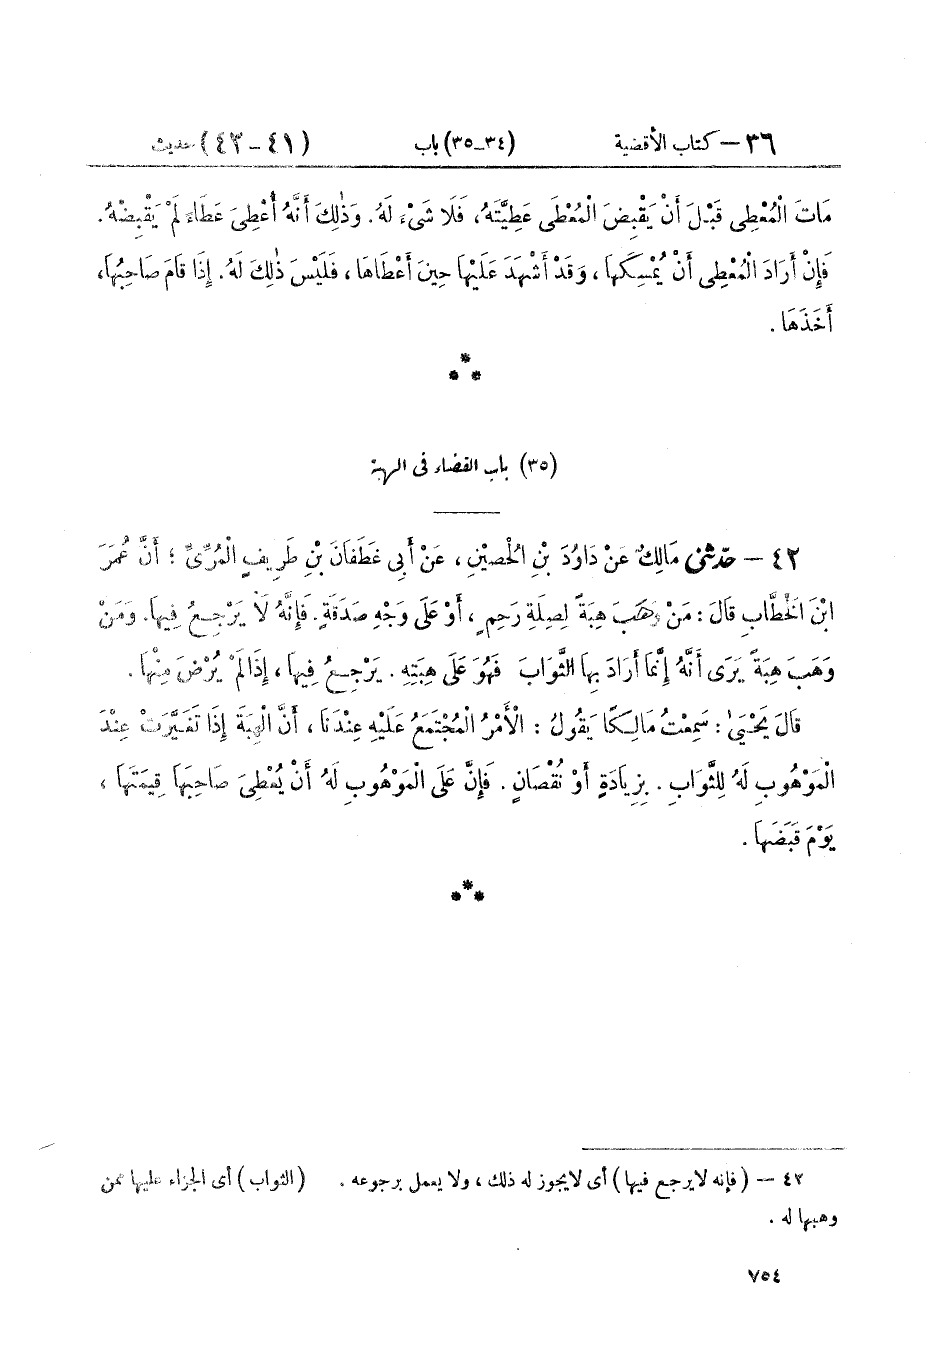 ٣٦ – كتاب الأقضية (٣٤-٣٥) باب (٤١-٤٣) حديث
مَاتَ الْمُعْطِى قَبْلَ أَنْ يَقْبِضَ الْمُعْطَى عَطِيَّتَهُ، فَلَا شَىْءَ لَهُ. وَذٰلِكَ أَنَّهُ أُعْطِىَ عَطَاءً لَمْ يَقْبِضْهُ.
فَإِنْ أَرَادَ الْمُعْطِى أَنْ يُمْسِكَهَا، وَقَدْ أَشْهَدَ عَلَيْهَا حِينَ أَعْطَاهَا، فَلَيْسَ ذٰلِكَ لَهُ. إِذَا قَامَ صَاحِبُهَا،
أَخَذَهَا.
***
(٣٥) باب القضاء فى الهبة
٤٢ – حَدّثنى مَالِكٌ عَنْ دَاوُدَ بْنِ الْحُصَيْنِ، عَنْ أَبِى غَطَفَانَ بْنِ طَرِيفٍ الْمُرِّىِّ؛ أَنَّ عُمَرَ
ابْنَ الْخَطَّابِ قَالَ: مَنْ وَهَبَ هِبَةً لِصِلَةِ رَحِمٍ، أَوْ عَلَى وَجْهِ صَدَقَةٍ. فَإِنَّهُ لَا يَرْجِعُ فِيهَا. وَمَنْ
وَهَبَ هِبَةً يَرَى أَنَّهُ إِنَّمَا أَرَادَ بِهَا الثَّوَابَ فَهُوَ عَلَى هِبَتِهِ. يَرْجِعُ فِيهَا، إِذَا لَمْ يُرْضَ مِنْهَا.
قَالَ يَحْيَىٰ: سَمِعْتُ مَالِكًا يَقُولُ: الْأَمْرُ الْمُجْتَمَعُ عَلَيْهِ عِنْدَنَا، أَنَّ الْهِبَةَ إِذَا تَغَيَّرَتْ عِنْدَ
الْمَوْهُوبِ لَهُ لِلثَّوَابِ. بِزِيَادَةٍ أَوْ نُقْصَانٍ. فَإِنَّ عَلَى الْمَوْهُوبِ لَهُ أَنْ يُعْطِىَ صَاحِبَهَا قِيمَتَهَا،
يَوْمَ قَبَضَهَا.
***
٤٢ – (فإنه لا يرجع فيها) أى لا يجوز له ذلك، ولا يعمل برجوعه. (الثواب) أى الجزاء عليها ممن
وهبها له.
٧٥٤